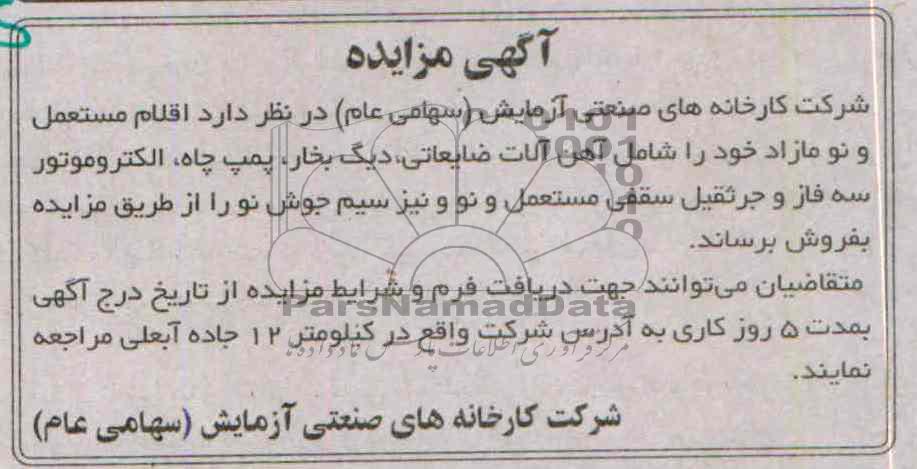 آگهی مزایده
شرکت کارخانه های صنعتی آزمایش (سهامی عام) در نظر دارد اقلام مستعمل
و نو مازاد خود را شامل آهن آلات ضایعاتی، دیگ بخار، پمپ چاه، الکتروموتور
سه فاز و جرثقیل سقفی مستعمل و نو و نیز سیم جوش نو را از طریق مزایده
بفروش برساند.
متقاضیان می‌توانند جهت دریافت فرم و شرایط مزایده از تاریخ درج آگهی
ParsNamadData
بمدت ۵ روز کاری به آدرس شرکت واقع در کیلومتر ۱۲ جاده آبعلی مراجعه
نمایند.
شرکت کارخانه های صنعتی آزمایش (سهامی عام)